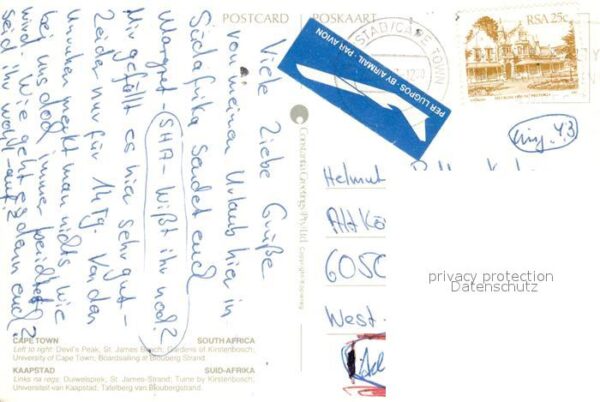 POSTCARD POSKAART
STAD/CAPE TOWN
RSA 25c
PER LUGPOS BY AIRMAIL PAR AVION
Viele liebe Grüße
von meinen Urlaub hier in
Südafrika sendet euch
Margret - SHA - Wißt ihr noch?
Mir gefällt es hier sehr gut -
Leider nur für 14 Tg. Von den
Unruhen merkt man nichts wie
bei uns doch immer berichtet
wird. Wie geht es denn euch?
Seid ihr wohl-auf?
Constantia Greetings (Pty) Ltd Copyright Kopiereg
Helmut
Alt Kö
6050
West-
privacy protection
Datenschutz
CAPE TOWN SOUTH AFRICA
Left to right: Devil's Peak, St. James Beach, Gardens of Kirstenbosch,
University of Cape Town, Boardsailing at Blouberg Strand.
KAAPSTAD SUID-AFRIKA
Links na regs: Duiwelspiek, St. James-Strand; Tuine by Kirstenbosch,
Universiteit van Kaapstad; Tafelberg van Bloubergstrand.